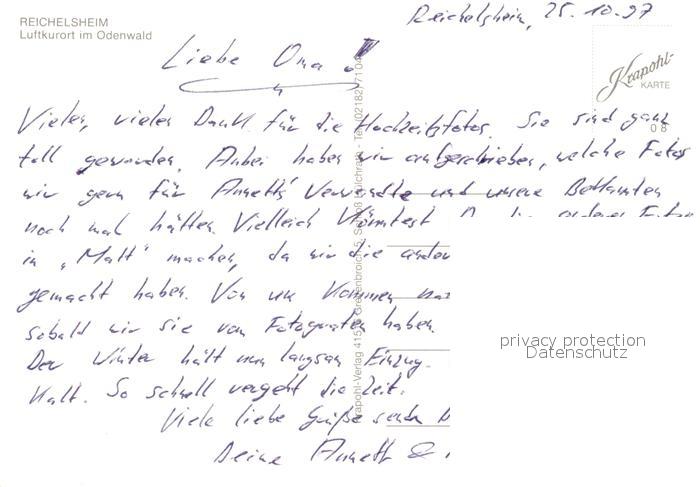 REICHELSHEIM
Luftkurort im Odenwald
Reichelsheim, 25.10.97
Krapohl-
KARTE
08
Liebe Oma!
Vielen, vielen Dank für die Hochzeitsfotos. Sie sind ganz
toll geworden. Anbei haben wir aufgeschrieben, welche Fotos
wir gern für Annett's Verwandte und unsere Bekannten
noch mal hätten. Vielleich könntest
in "Matt" machen, da wir die anderen
gemacht haben. Von uns kommen
sobald wir sie vom Fotografen haben.
Der Winter hält nun langsam Einzug.
kalt. So schnell vergeht die Zeit.
Viele liebe Grüße senden
Deine Annett &
Krapohl-Verlag
privacy protection
Datenschutz